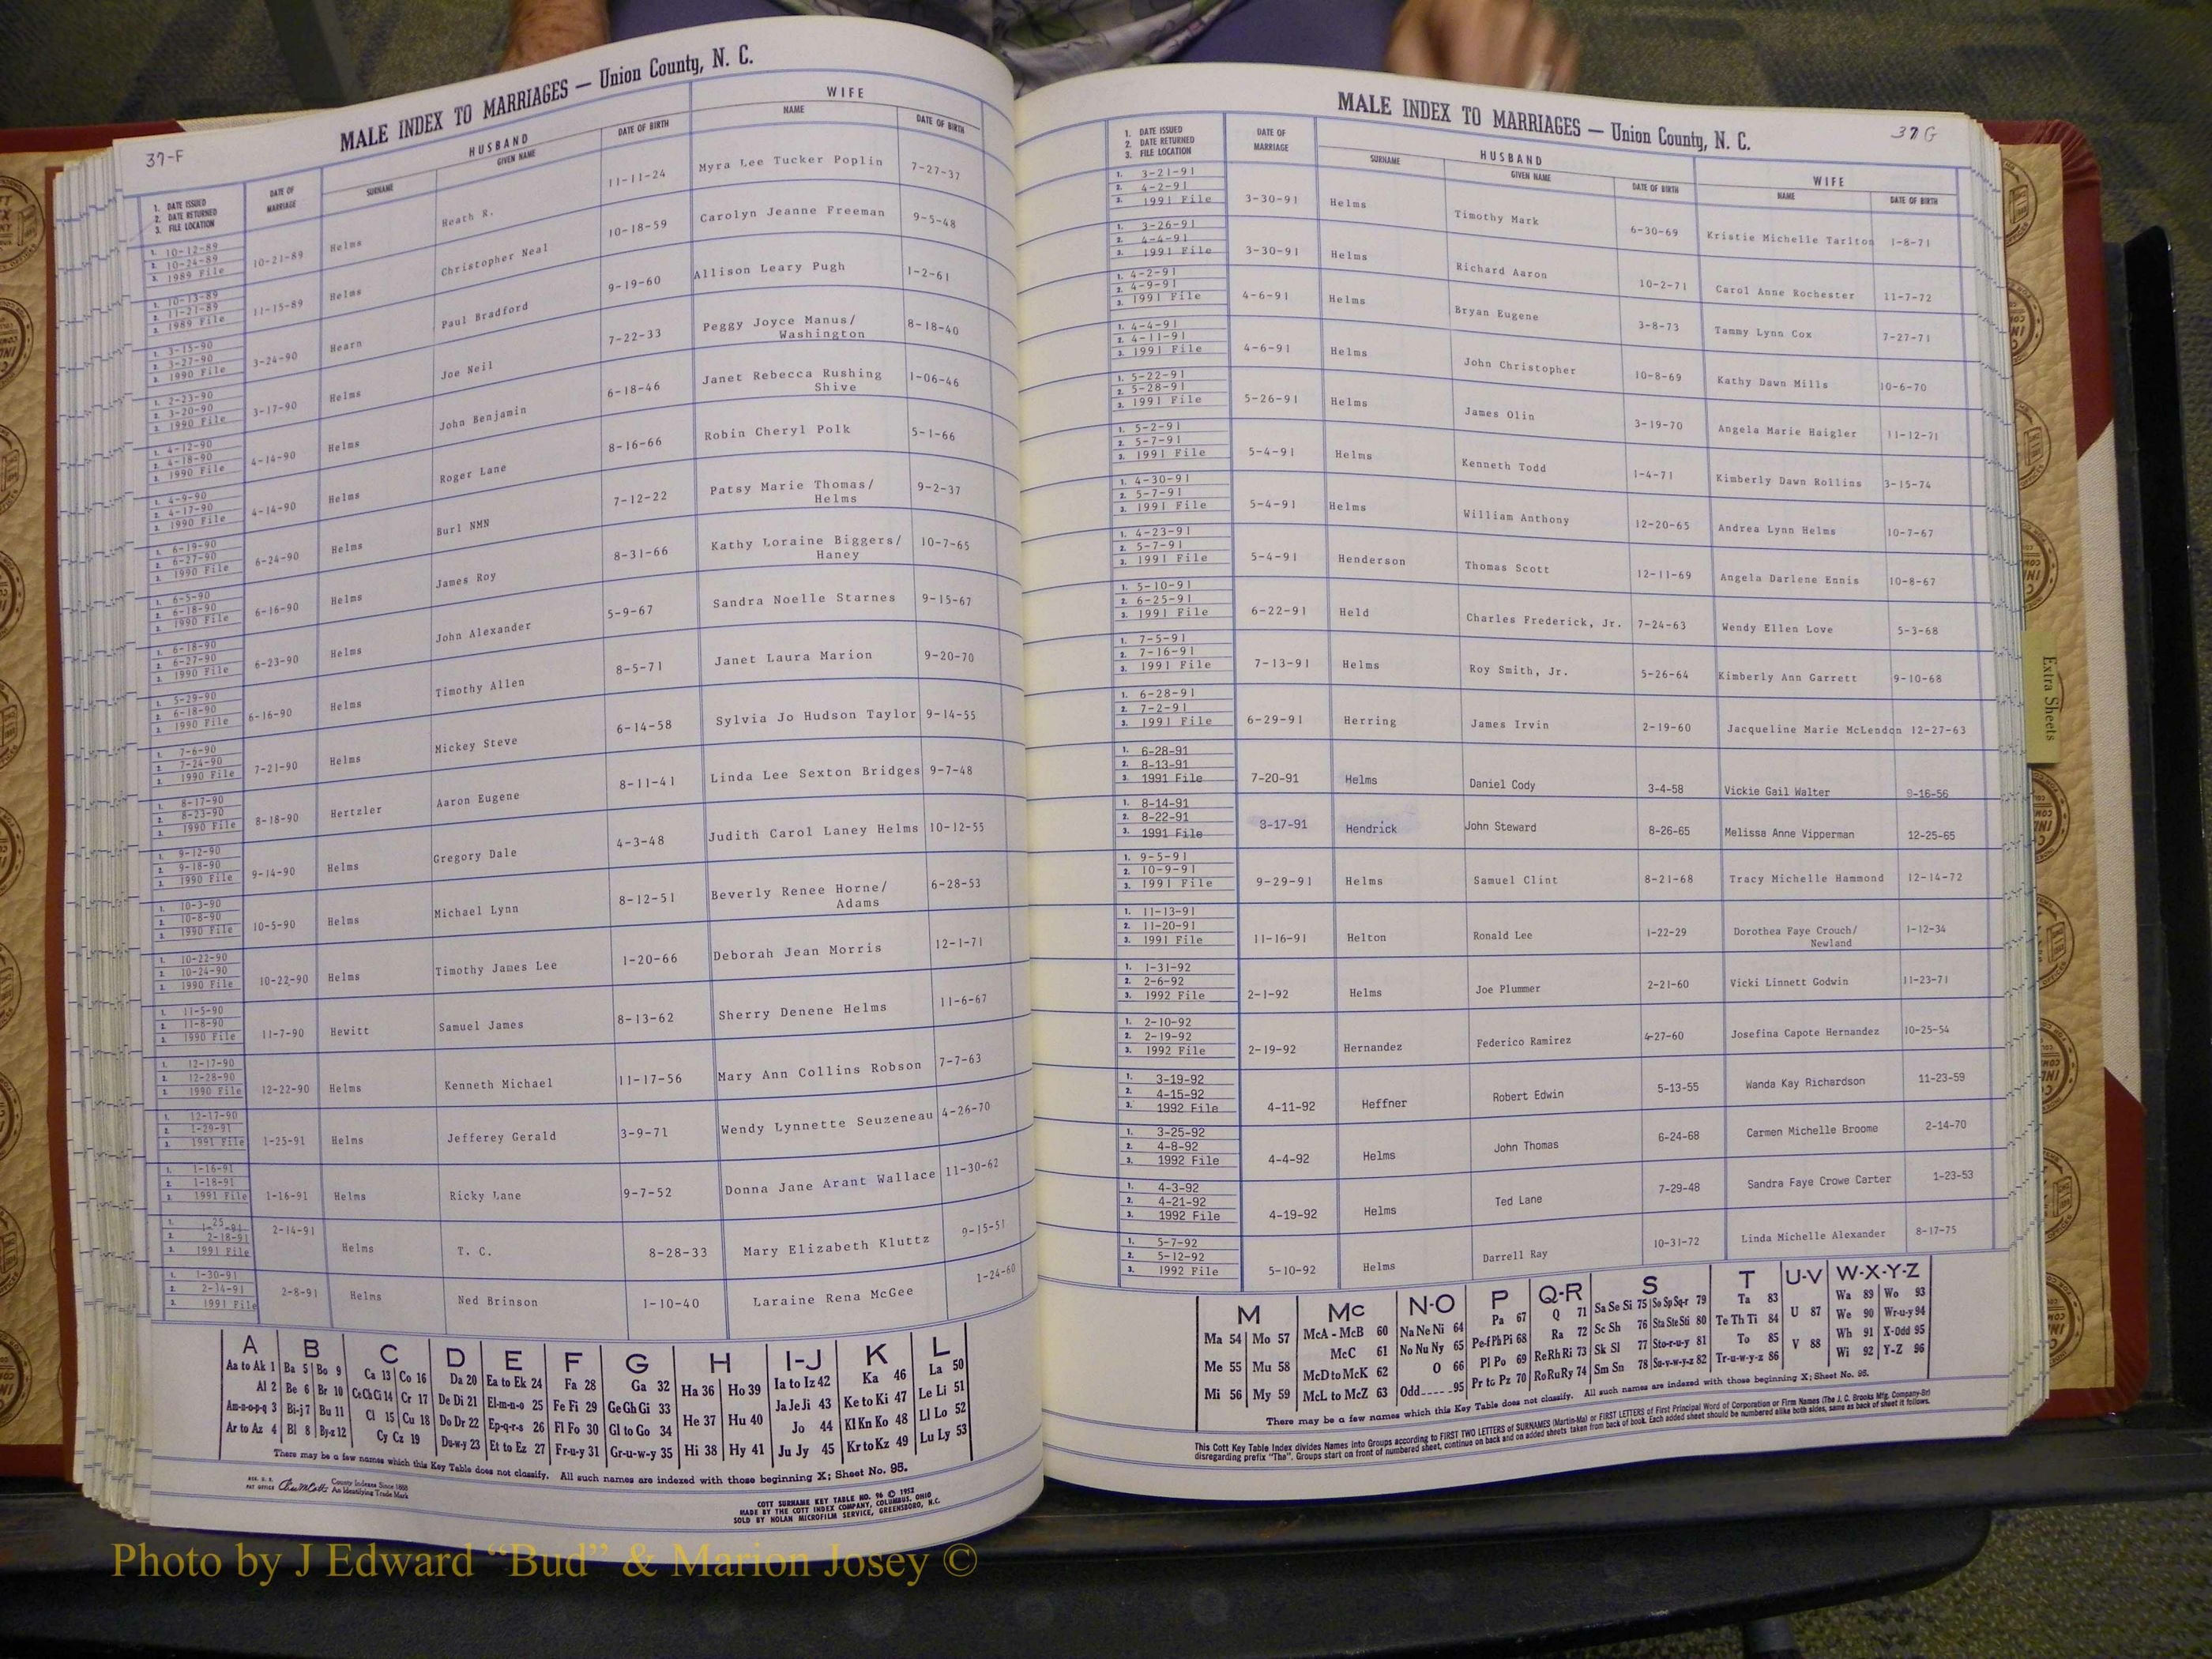 37-F
MALE INDEX TO MARRIAGES — Union County, N. C.
HUSBAND WIFE
1. DATE ISSUED
2. DATE RETURNED
3. FILE LOCATION
DATE OF MARRIAGE SURNAME GIVEN NAME DATE OF BIRTH NAME DATE OF BIRTH
1. 10-12-89
2. 10-24-89
3. 1989 File
10-21-89 Helms Heath R. 11-11-24 Myra Lee Tucker Poplin 7-27-37
1. 10-13-89
2. 11-21-89
3. 1989 File
11-15-89 Helms Christopher Neal 10-18-59 Carolyn Jeanne Freeman 9-5-48
1. 3-15-90
2. 3-27-90
3. 1990 File
3-24-90 Hearn Paul Bradford 9-19-60 Allison Leary Pugh 1-2-61
1. 2-23-90
2. 3-20-90
3. 1990 File
3-17-90 Helms Joe Neil 7-22-33 Peggy Joyce Manus/ 8-18-40
Washington
1. 4-12-90
2. 4-18-90
3. 1990 File
4-14-90 Helms John Benjamin 6-18-46 Janet Rebecca Rushing 1-06-46
Shive
1. 4-9-90
2. 4-17-90
3. 1990 File
4-14-90 Helms Roger Lane 8-16-66 Robin Cheryl Polk 5-1-66
1. 6-19-90
2. 6-27-90
3. 1990 File
6-24-90 Helms Burl NMN 7-12-22 Patsy Marie Thomas/ 9-2-37
Helms
1. 6-5-90
2. 6-18-90
3. 1990 File
6-16-90 Helms James Roy 8-31-66 Kathy Loraine Biggers/ 10-7-65
Haney
1. 6-18-90
2. 6-27-90
3. 1990 File
6-23-90 Helms John Alexander 5-9-67 Sandra Noelle Starnes 9-15-67
1. 5-29-90
2. 6-18-90
3. 1990 File
6-16-90 Helms Timothy Allen 8-5-71 Janet Laura Marion 9-20-70
1. 7-6-90
2. 7-24-90
3. 1990 File
7-21-90 Helms Mickey Steve 6-14-58 Sylvia Jo Hudson Taylor 9-14-55
1. 8-17-90
2. 8-23-90
3. 1990 File
8-18-90 Hertzler Aaron Eugene 8-11-41 Linda Lee Sexton Bridges 9-7-48
1. 9-12-90
2. 9-18-90
3. 1990 File
9-14-90 Helms Gregory Dale 4-3-48 Judith Carol Laney Helms 10-12-55
1. 10-3-90
2. 10-8-90
3. 1990 File
10-5-90 Helms Michael Lynn 8-12-51 Beverly Renee Horne/ 6-28-53
Adams
1. 10-22-90
2. 10-24-90
3. 1990 File
10-22-90 Helms Timothy James Lee 1-20-66 Deborah Jean Morris 12-1-71
1. 11-5-90
2. 11-8-90
3. 1990 File
11-7-90 Hewitt Samuel James 8-13-62 Sherry Denene Helms 11-6-67
1. 12-17-90
2. 12-28-90
3. 1990 File
12-22-90 Helms Kenneth Michael 11-17-56 Mary Ann Collins Robson 7-7-63
1. 12-17-90
2. 1-29-91
3. 1991 File
1-25-91 Helms Jefferey Gerald 3-9-71 Wendy Lynnette Seuzeneau 4-26-70
1. 1-16-91
2. 1-18-91
3. 1991 File
1-16-91 Helms Ricky Lane 9-7-52 Donna Jane Arant Wallace 11-30-62
1. 1-25-91
2. 2-18-91
3. 1991 File
2-14-91 Helms T. C. 8-28-33 Mary Elizabeth Kluttz 9-15-51
1. 1-30-91
2. 2-14-91
3. 1991 File
2-8-91 Helms Ned Brinson 1-10-40 Laraine Rena McGee 1-24-60
A B C D E F G H I-J K L
Aa to Ak 1 Ba 5 Bo 9 Ca 13 Co 16 Da 20 Ea to Ek 24 Fa 28 Ga 32 Ha 36 Ho 39 Ia to Iz 42 Ka 46 La 50
Al 2 Be 6 Br 10 Ce Ch Ci 14 Cr 17 De Di 21 El-m-n-o 25 Fe Fi 29 Ge Gh Gi 33 He 37 Hu 40 Ja Je Ji 43 Ke to Ki 47 Le Li 51
Am-n-o-p-q 3 Bi-j 7 Bu 11 Cl 15 Cu 18 Do Dr 22 Ep-q-r-s 26 Fl Fo 30 Gl to Go 34 Hi 38 Hy 41 Jo 44 Kl Kn Ko 48 Ll Lo 52
Ar to Az 4 Bl 8 By-z 12 Cy Cz 19 Du-w-y 23 Et to Ez 27 Fr-u-y 31 Gr-u-w-y 35 Ju Jy 45 Kr to Kz 49 Lu Ly 53
There may be a few names which this Key Table does not classify. All such names are indexed with those beginning X; Sheet No. 95.
REG. U. S. PAT OFFICE
County Indexes Since 1888
An Identifying Trade Mark
COTT SURNAME KEY TABLE NO. 96 © 1952
MADE BY THE COTT INDEX COMPANY, COLUMBUS, OHIO
SOLD BY NOLAN MICROFILM SERVICE, GREENSBORO, N.C.
37 G
MALE INDEX TO MARRIAGES — Union County, N. C.
HUSBAND WIFE
1. DATE ISSUED
2. DATE RETURNED
3. FILE LOCATION
DATE OF MARRIAGE SURNAME GIVEN NAME DATE OF BIRTH NAME DATE OF BIRTH
1. 3-21-91
2. 4-2-91
3. 1991 File
3-30-91 Helms Timothy Mark 6-30-69 Kristie Michelle Tarlton 1-8-71
1. 3-26-91
2. 4-4-91
3. 1991 File
3-30-91 Helms Richard Aaron 10-2-71 Carol Anne Rochester 11-7-72
1. 4-2-91
2. 4-9-91
3. 1991 File
4-6-91 Helms Bryan Eugene 3-8-73 Tammy Lynn Cox 7-27-71
1. 4-4-91
2. 4-11-91
3. 1991 File
4-6-91 Helms John Christopher 10-8-69 Kathy Dawn Mills 10-6-70
1. 5-22-91
2. 5-28-91
3. 1991 File
5-26-91 Helms James Olin 3-19-70 Angela Marie Haigler 11-12-71
1. 5-2-91
2. 5-7-91
3. 1991 File
5-4-91 Helms Kenneth Todd 1-4-71 Kimberly Dawn Rollins 3-15-74
1. 4-30-91
2. 5-7-91
3. 1991 File
5-4-91 Helms William Anthony 12-20-65 Andrea Lynn Helms 10-7-67
1. 4-23-91
2. 5-7-91
3. 1991 File
5-4-91 Henderson Thomas Scott 12-11-69 Angela Darlene Ennis 10-8-67
1. 5-10-91
2. 6-25-91
3. 1991 File
6-22-91 Held Charles Frederick, Jr. 7-24-63 Wendy Ellen Love 5-3-68
1. 7-5-91
2. 7-16-91
3. 1991 File
7-13-91 Helms Roy Smith, Jr. 5-26-64 Kimberly Ann Garrett 9-10-68
1. 6-28-91
2. 7-2-91
3. 1991 File
6-29-91 Herring James Irvin 2-19-60 Jacqueline Marie McLendon 12-27-63
1. 6-28-91
2. 8-13-91
3. 1991 File
7-20-91 Helms Daniel Cody 3-4-58 Vickie Gail Walter 9-16-56
1. 8-14-91
2. 8-22-91
3. 1991 File
8-17-91 Hendrick John Steward 8-26-65 Melissa Anne Vipperman 12-25-65
1. 9-5-91
2. 10-9-91
3. 1991 File
9-29-91 Helms Samuel Clint 8-21-68 Tracy Michelle Hammond 12-14-72
1. 11-13-91
2. 11-20-91
3. 1991 File
11-16-91 Helton Ronald Lee 1-22-29 Dorothea Faye Crouch/ 1-12-34
Newland
1. 1-31-92
2. 2-6-92
3. 1992 File
2-1-92 Helms Joe Plummer 2-21-60 Vicki Linnett Godwin 11-23-71
1. 2-10-92
2. 2-19-92
3. 1992 File
2-19-92 Hernandez Federico Ramirez 4-27-60 Josefina Capote Hernandez 10-25-54
1. 3-19-92
2. 4-15-92
3. 1992 File
4-11-92 Heffner Robert Edwin 5-13-55 Wanda Kay Richardson 11-23-59
1. 3-25-92
2. 4-8-92
3. 1992 File
4-4-92 Helms John Thomas 6-24-68 Carmen Michelle Broome 2-14-70
1. 4-3-92
2. 4-21-92
3. 1992 File
4-19-92 Helms Ted Lane 7-29-48 Sandra Faye Crowe Carter 1-23-53
1. 5-7-92
2. 5-12-92
3. 1992 File
5-10-92 Helms Darrell Ray 10-31-72 Linda Michelle Alexander 8-17-75
M Mc N-O P Q-R S T U-V W-X-Y-Z
Ma 54 Mo 57 McA - McB 60 Na Ne Ni 64 Pa 67 Q 71 Sa Se Si 75 So Sp Sq-r 79 Ta 83 U 87 Wa 89 Wo 93
Me 55 Mu 58 McC 61 No Nu Ny 65 Pe-f Ph Pi 68 Ra 72 Sc Sh 76 Sta Ste Sti 80 Te Th Ti 84 V 88 We 90 Wr-u-y 94
Mi 56 My 59 McD to McK 62 O 66 Pl Po 69 Re Rh Ri 73 Sk Sl 77 Sto-r-u-y 81 To 85 Wh 91 X-Odd 95
McL to McZ 63 Odd 95 Pr to Pz 70 Ro Ru Ry 74 Sm Sn 78 Su-v-w-y-z 82 Tr-u-w-y-z 86 Wi 92 Y-Z 96
There may be a few names which this Key Table does not classify. All such names are indexed with those beginning X; Sheet No. 95.
This Cott Key Table Index divides Names into Groups according to FIRST TWO LETTERS of SURNAMES (Martin-Ma) or FIRST LETTERS of First Principal Word of Corporation or Firm Names (The J. C. Brooks Mfg. Company-Br)
disregarding prefix "The". Groups start on front of numbered sheet, continue on back and on added sheets taken from back of book. Each added sheet should be numbered alike both sides, same as back of sheet it follows.
Extra Sheets
Photo by J Edward “Bud” & Marion Josey ©